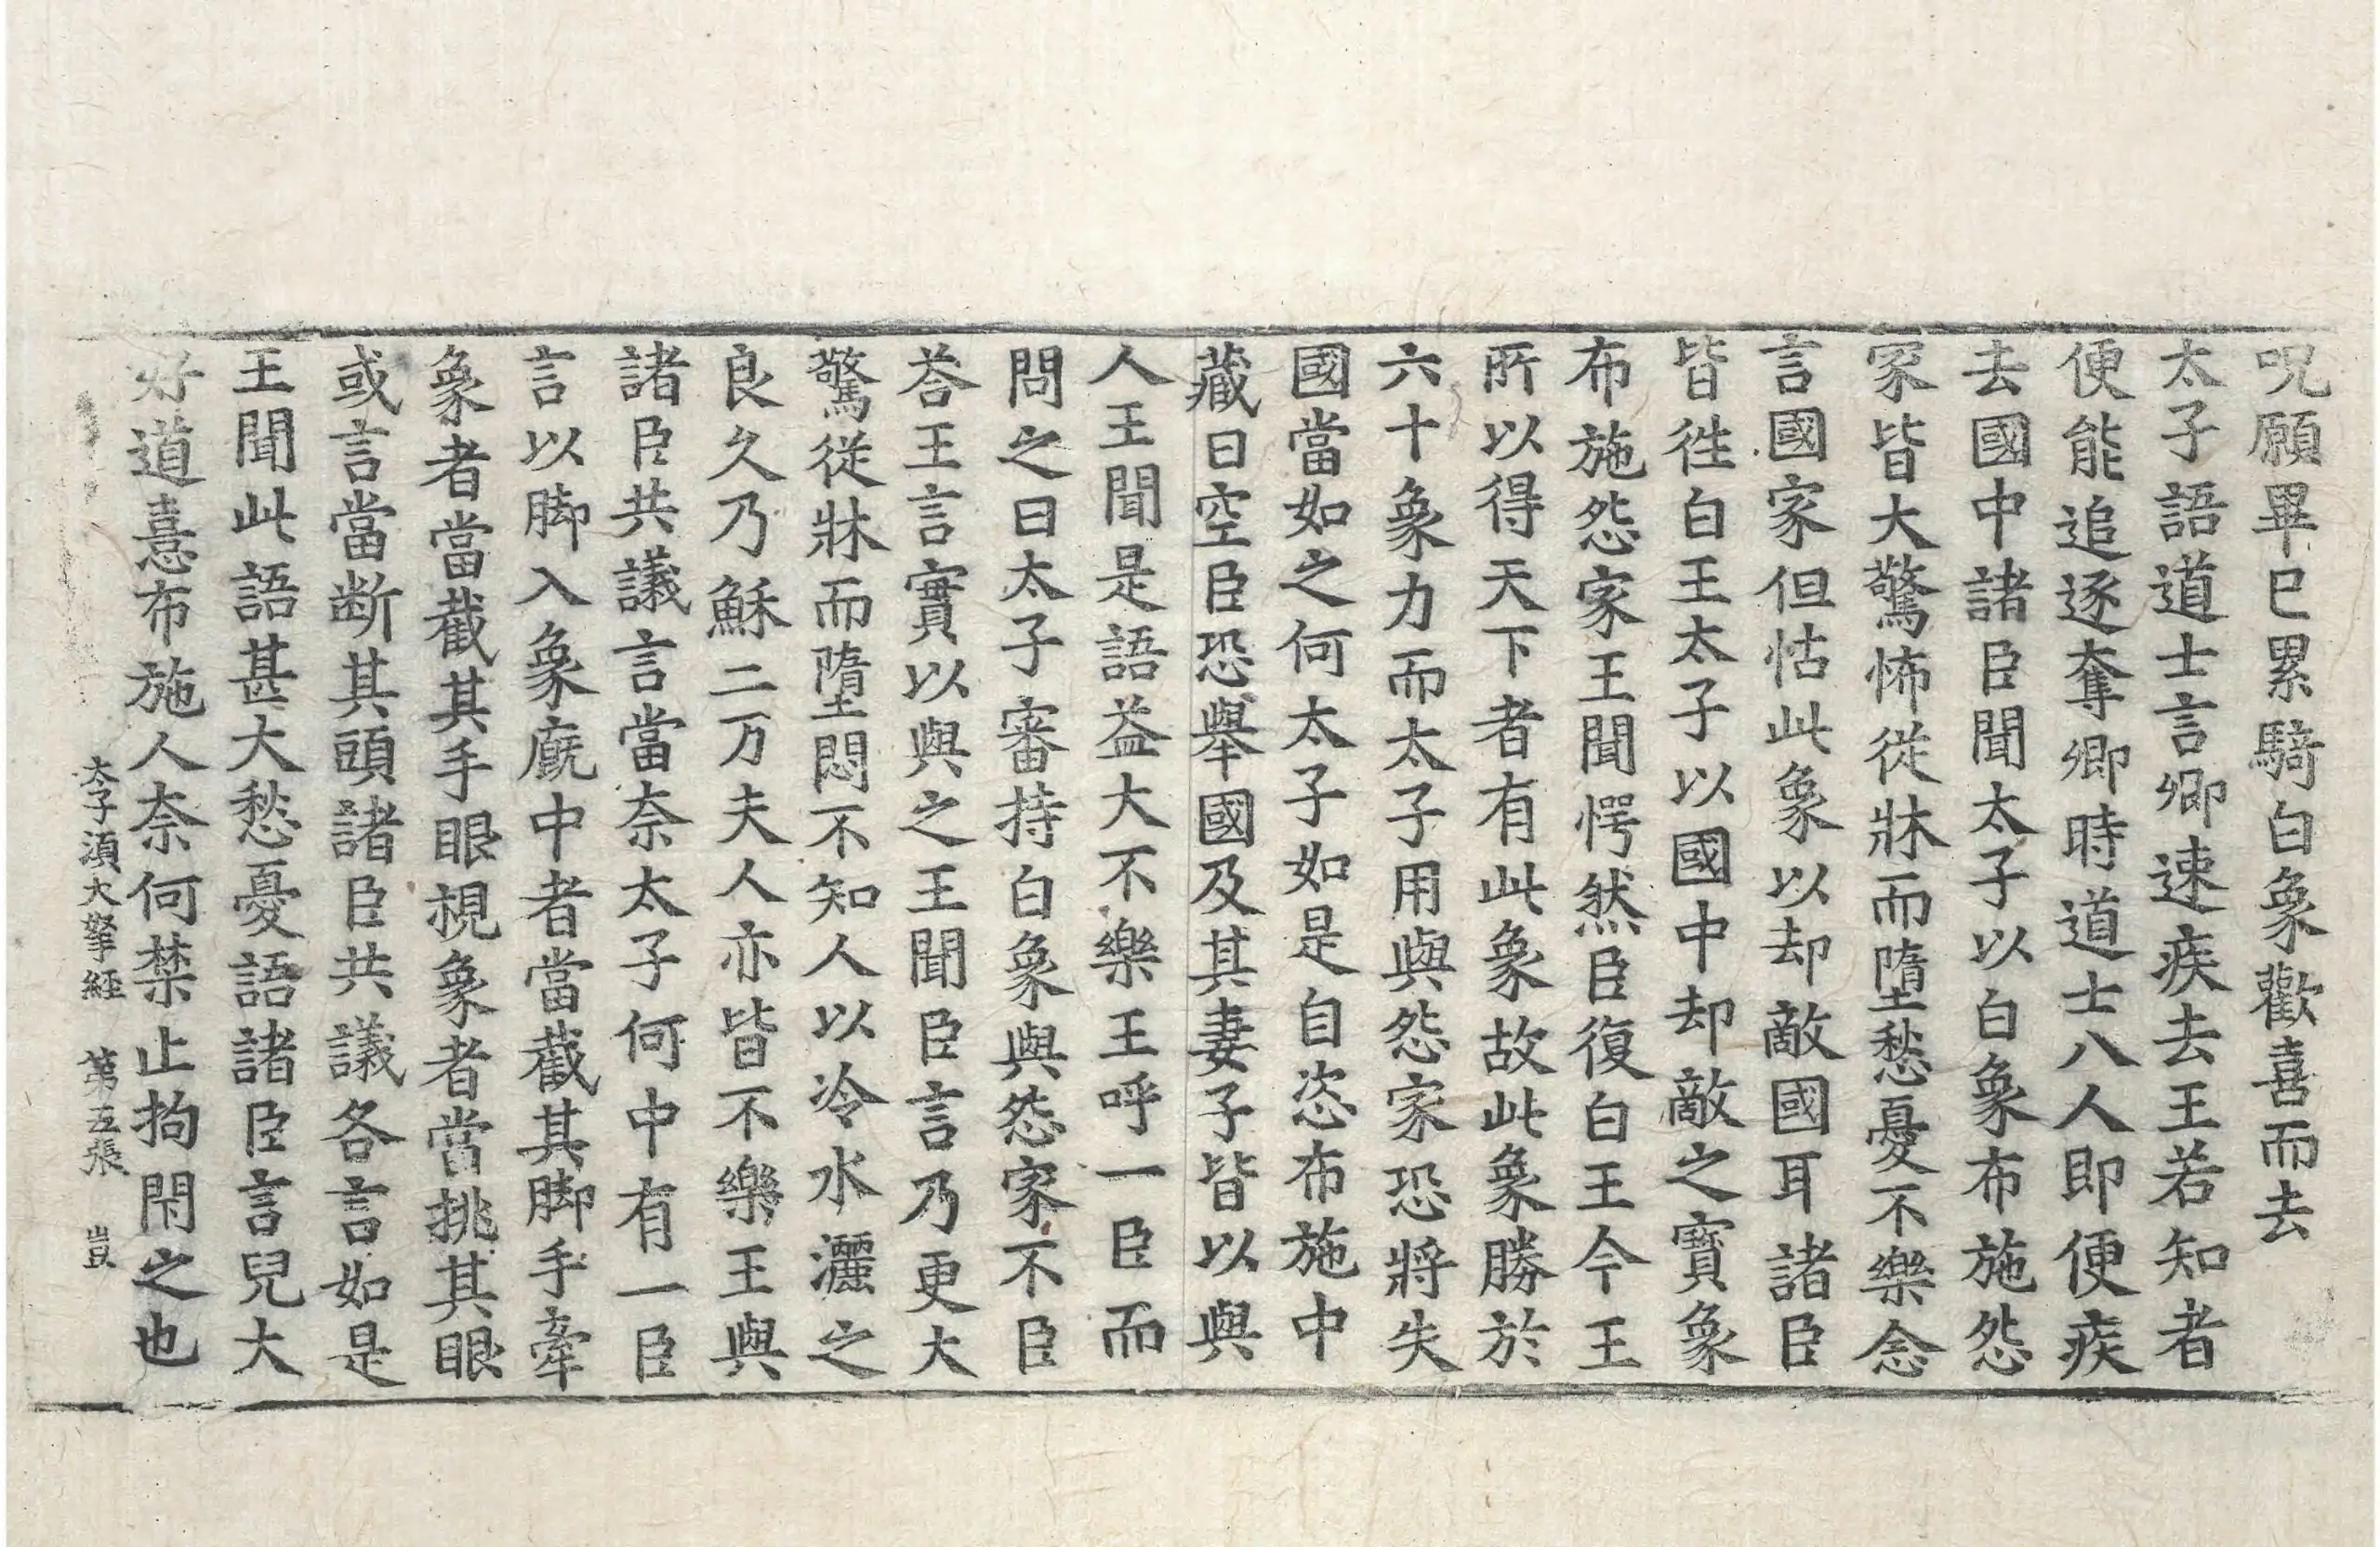 呪願畢已累騎白象歡喜而去
太子語道士言卿速疾去王若知者
便能追逐奪卿時道士八人即便疾
去國中諸臣聞太子以白象布施怨
家皆大驚怖從牀而墮愁憂不樂念
言國家但怙此象以却敵國耳諸臣
皆徃白王太子以國中却敵之寶象
布施怨家王聞愕然臣復白王今王
所以得天下者有此象故此象勝於
六十象力而太子用與怨家恐將失
國當如之何太子如是自恣布施中
藏日空臣恐舉國及其妻子皆以與
人王聞是語益大不樂王呼一臣而
問之曰太子審持白象與怨家不臣
荅王言實以與之王聞臣言乃更大
驚從牀而墮悶不知人以冷水灑之
良久乃穌二万夫人亦皆不樂王與
諸臣共議言當奈太子何中有一臣
言以脚入象廐中者當截其脚手牽
象者當截其手眼視象者當挑其眼
或言當断其頭諸臣共議各言如是
王聞此語甚大愁憂語諸臣言兒大
好道憙布施人奈何禁止拘閇之也
太子湏大拏經 第五張 豈